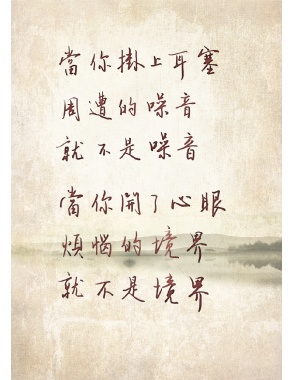 當你掛上耳塞
周遭的噪音
就不是噪音
當你開了心眼
煩惱的境界
就不是境界